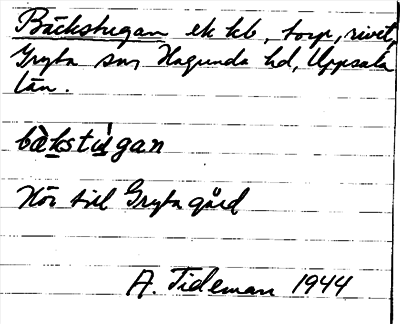 Bäckstugan ek kb, torp, rivet,
Gryta sn, Hagunda hd, Uppsala
län.
bä̀kstu̇gan
Hör till Gryta gård
A. Tideman 1944